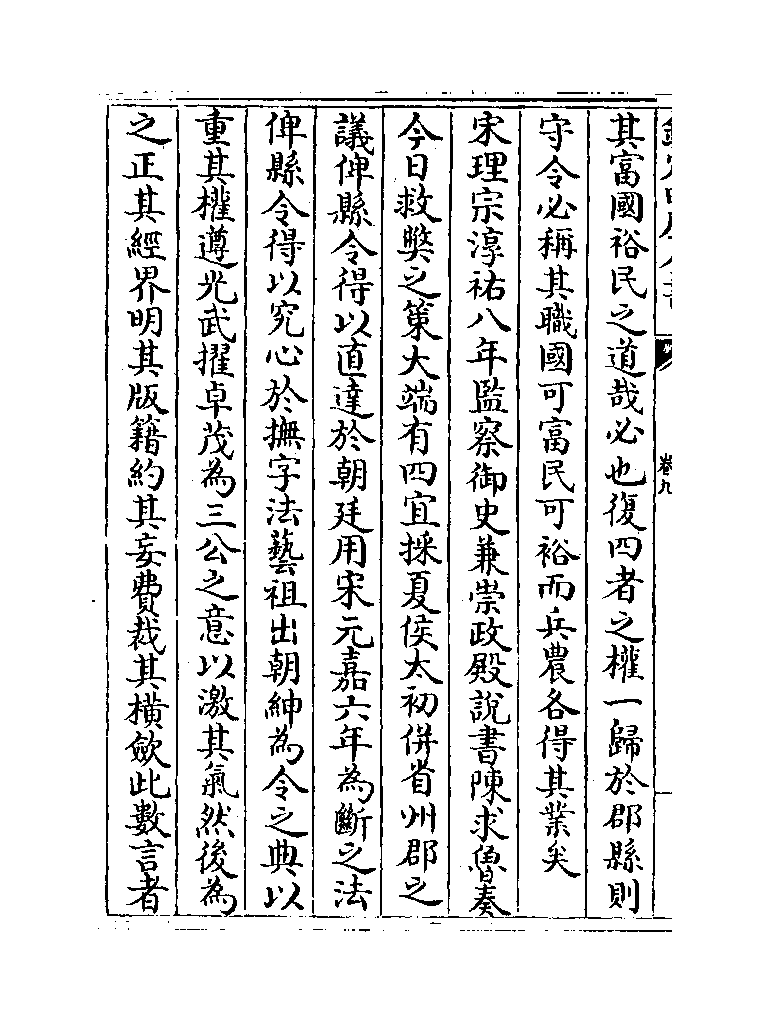 卷九
其富國裕民之道哉必也復四者之權一歸於郡縣則
守令必稱其職國可富民可裕而兵農各得其業矣
宋理宗淳祐八年監察御史兼崇政殿說書陳求魯奏
今日救獘之策大端有四宜採夏侯太初併省州郡之
議俾縣令得以直達於朝廷用宋元嘉六年為斷之法
俾縣令得以究心於撫字法藝祖出朝紳為令之典以
重其權遵光武擢卓茂為三公之意以激其氣然後為
之正其經界明其版籍約其妄費裁其橫歛此數言者